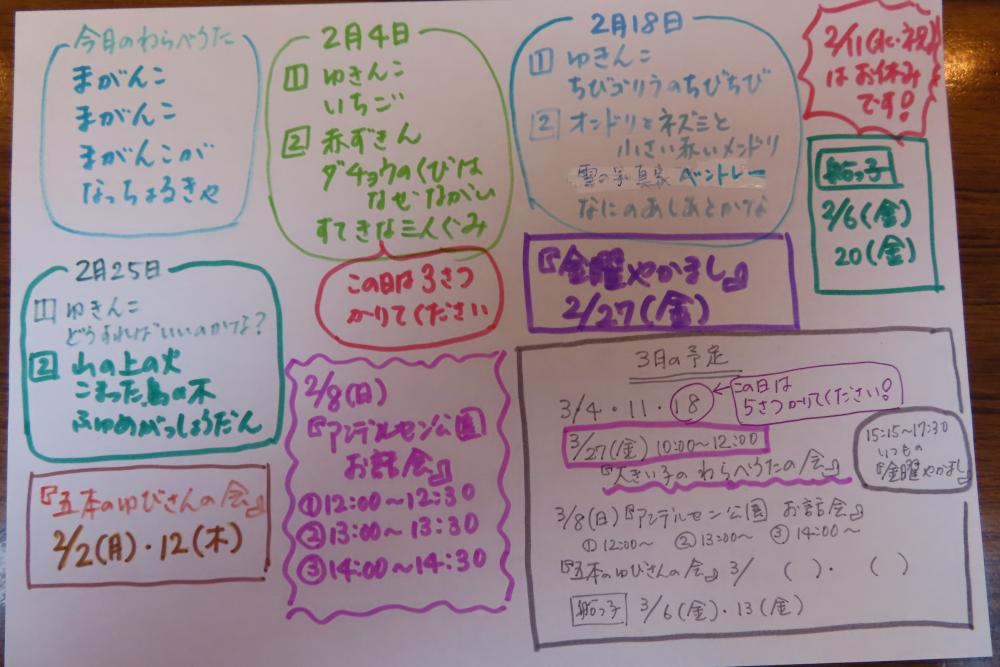 今月のわらべうた
まがんこ
まがんこ
まがんこが
なっちょるきゃ
2月4日
1 ゆきんこ
いちご
2 赤ずきん
ダチョウのくびは
なぜながい
すてきな三人ぐみ
この日は3さつ
かりてください
2月18日
1 ゆきんこ
ちびゴリラのちびちび
2 オンドリとネズミと
小さい赤いメンドリ
雪の写真家 ベントレー
なにのあしあとかな
2/11(水・祝)
はお休み
です!
船っ子
2/6(金)
20(金)
2月25日
1 ゆきんこ
どうすればいいのかな?
2 山の上の火
こまった鳥の木
ふゆめがっしょうだん
『金曜やかまし』
2/27(金)
『五本のゆびさんの会』
2/2(月)・12(木)
2/8(日)
『アンデルセン公園
お話会』
①12:00〜12:30
②13:00〜13:30
③14:00〜14:30
3月の予定
3/4・11・18
この日は
5さつかりてください!
3/27(金)10:00〜12:00
『大きい子のわらべうたの会』
15:15〜17:30
いつもの
『金曜やかまし』
3/8(日)『アンデルセン公園 お話会』
①12:00〜 ②13:00〜 ③14:00〜
『五本のゆびさんの会』3/ ( )・ ( )
船っ子 3/6(金)・13(金)